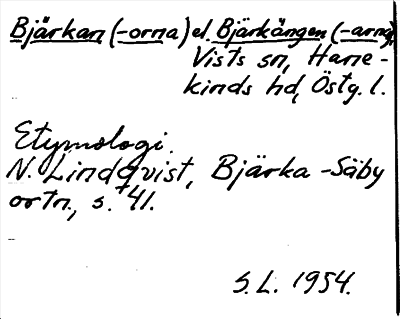 Bjärkan (-orna) el. Bjärkängen (-arna)
Vists sn, Hane-
kinds hd, Östg. l.
Etymologi.
N. Lindqvist, Bjärka-Säby
ortn., s. 41.
S.L. 1954.